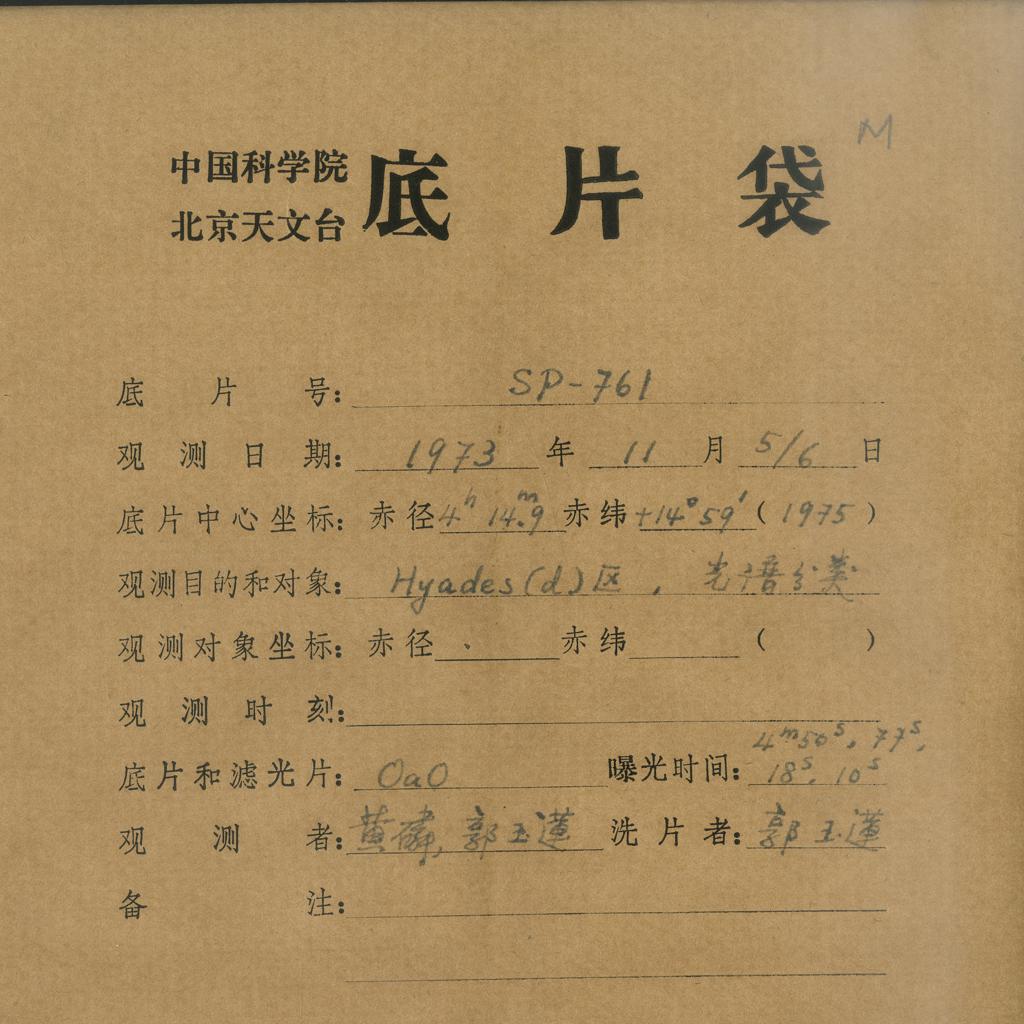 M
中国科学院
北京天文台
底片袋
底片号: SP-761
观测日期: 1973 年 11 月 5/6 日
底片中心坐标: 赤径 4h 14m.9 赤纬 +14°59′ ( 1975 )
观测目的和对象: Hyades(d)区, 光谱分类
观测对象坐标: 赤径 赤纬 ( )
观测时刻:
4m50s, 77s,
底片和滤光片: OaO 曝光时间: 18s, 10s
观测者: 黄磷, 郭玉莲 洗片者: 郭玉莲
备注: